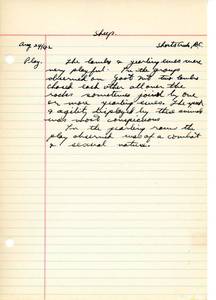 Sheep.
Aug 24/62
Play. The lambs & yearling ewes were
very playful. In the groups
observed on Goat Mt two lambs
chased each other all over the
rocks sometimes joined by one
or more yearling ewes. The speed
& agility displayed by these animals
was most conspicuous
In the yearling rams the
play observed was of a combat
& sexual nature.